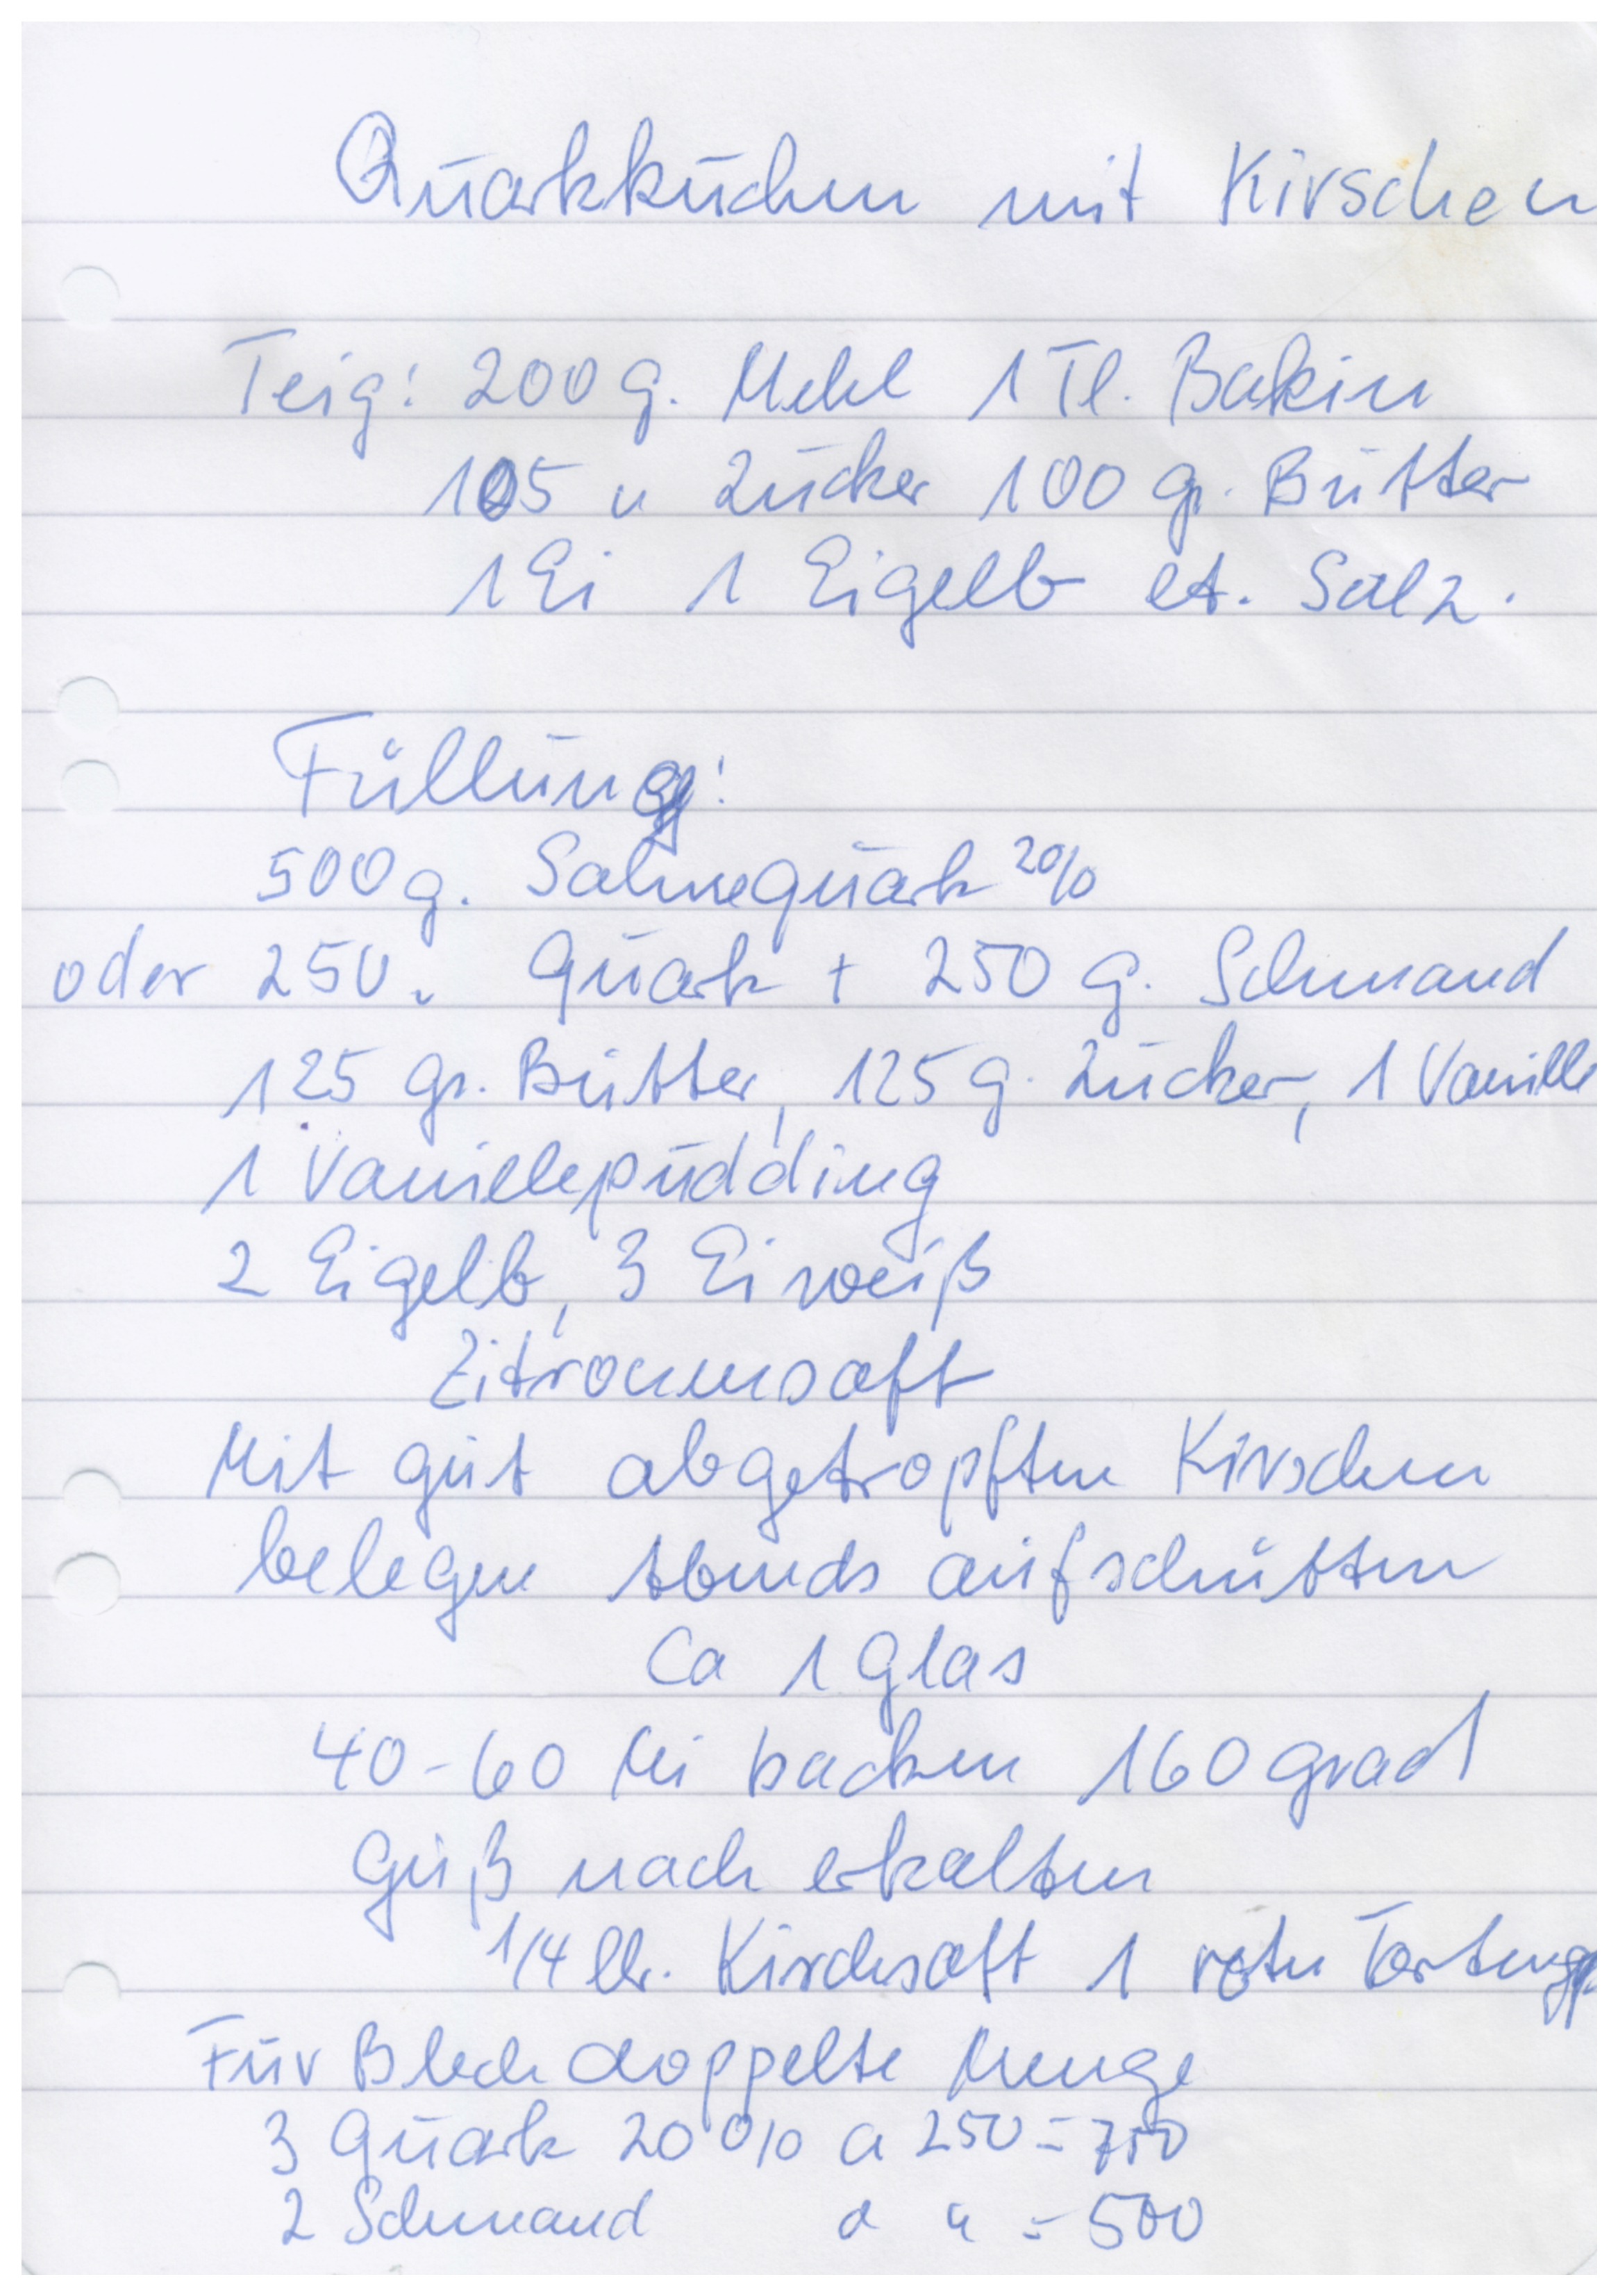 Quarkkuchen mit Kirschen
Teig: 200 g. Mehl 1 Tl. Bakin
105 " Zucker 100 gr. Butter
1 Ei 1 Eigelb et. Salz.
Füllung:
500 g. Sahnequark 20%
oder 250 " Quark + 250 g. Schmand
125 gr. Butter, 125 g. Zucker, 1 Vanille
1 Vanillepudding
2 Eigelb, 3 Eiweiß
Zitronensaft
Mit gut abgetropften Kirschen
belegen Abends aufschütten
Ca 1 Glas
40-60 Mi backen 160 grad
Guß nach erkalten
1/4 ltr. Kirschsaft 1 roten Tortengu
Für Blech doppelte Menge
3 Quark 20% a 250 = 750
2 Schmand a " = 500